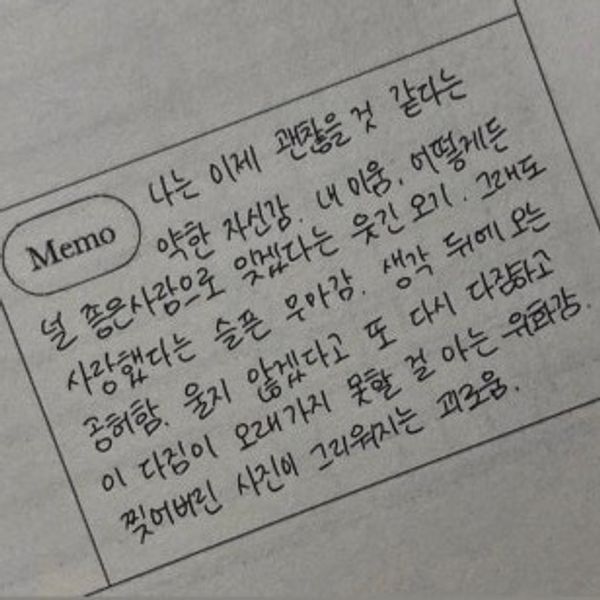 나는 이제 괜찮을 것 같다는
Memo
약한 자신감. 내 미움, 어떻게든
널 좋은사람으로 잊겠다는 웃긴 오기. 그래도
사랑했다는 슬픈 우아감. 생각 뒤에 오는
공허함. 울지 않겠다고 또 다시 다짐하고
이 다짐이 오래가지 못할 걸 아는 위화감.
찢어버린 사진이 그리워지는 괴로움.